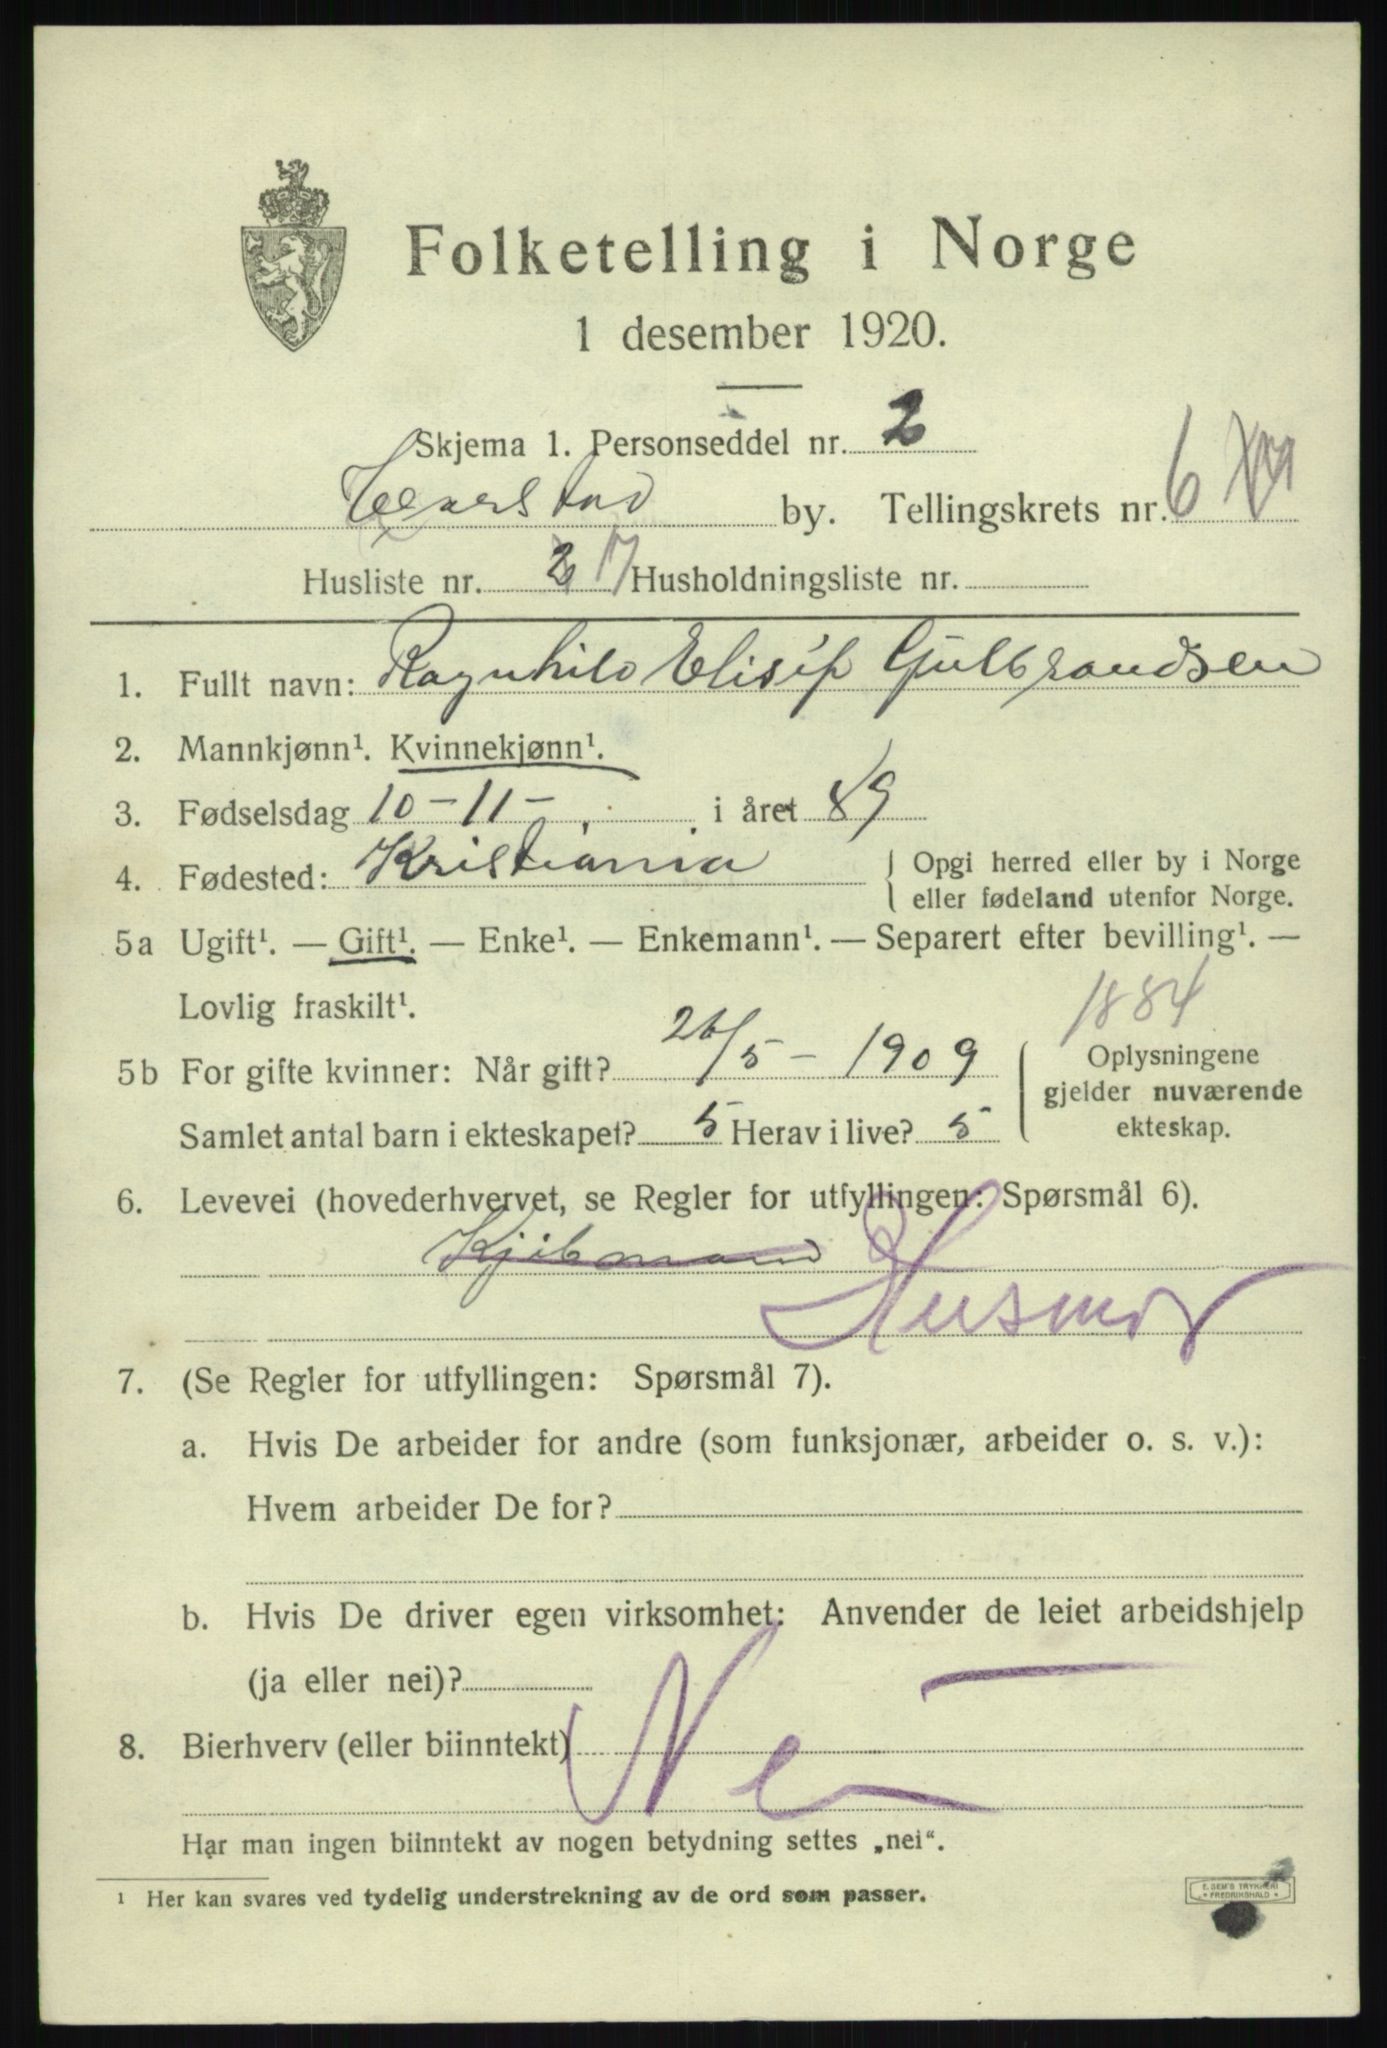 Folketelling i Norge
1 desember 1920.
Skjema 1. Personseddel nr. 2
Harstad by. Tellingskrets nr. 6
Husliste nr. 7 Husholdningsliste nr.
1. Fullt navn: Ragnhild Elisif Gulbrandsen
2. Mannkjønn¹. Kvinnekjønn¹.
3. Fødselsdag 10-11- i året 89
4. Fødested: Kristiania { Opgi herred eller by i Norge
eller fødeland utenfor Norge.
5a Ugift¹. — Gift¹. — Enke¹. — Enkemann¹. — Separert efter bevilling¹. —
Lovlig fraskilt¹.
1884
5b For gifte kvinner: Når gift? 26/5 - 1909
Samlet antal barn i ekteskapet? 5 Herav i live? 5
Oplysningene
gjelder nuværende
ekteskap.
6. Levevei (hovederhvervet, se Regler for utfyllingen: Spørsmål 6).
Kjöbmand
Husmor
7. (Se Regler for utfyllingen: Spørsmål 7).
a. Hvis De arbeider for andre (som funksjonær, arbeider o. s. v.):
Hvem arbeider De for?
b. Hvis De driver egen virksomhet: Anvender de leiet arbeidshjelp
(ja eller nei)? —
8. Bierhverv (eller biinntekt) Nei
Har man ingen biinntekt av nogen betydning settes „nei“.
¹ Her kan svares ved tydelig understrekning av de ord som passer.
E. SEM'S TRYKKERI
FREDRIKSHALD